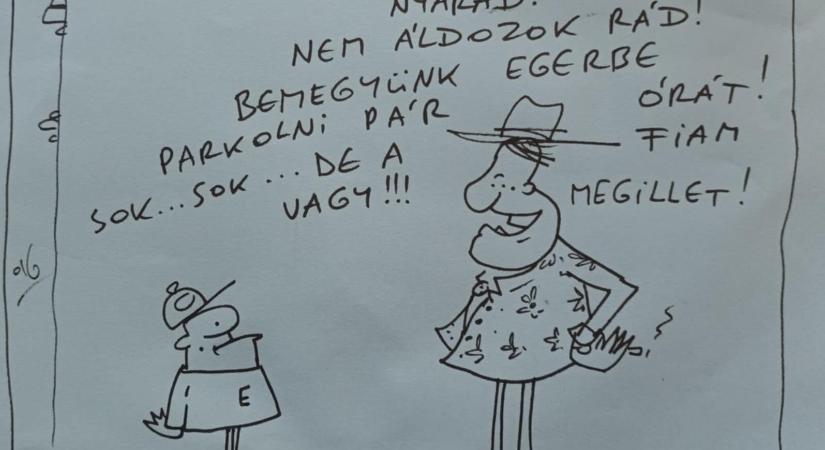 NEM ÁLDOZOK RÁD!
BEMEGYÜNK EGERBE
PARKOLNI PÁR ÓRÁT!
SOK...SOK...DE A FIAM
VAGY!!! MEGILLET!
E